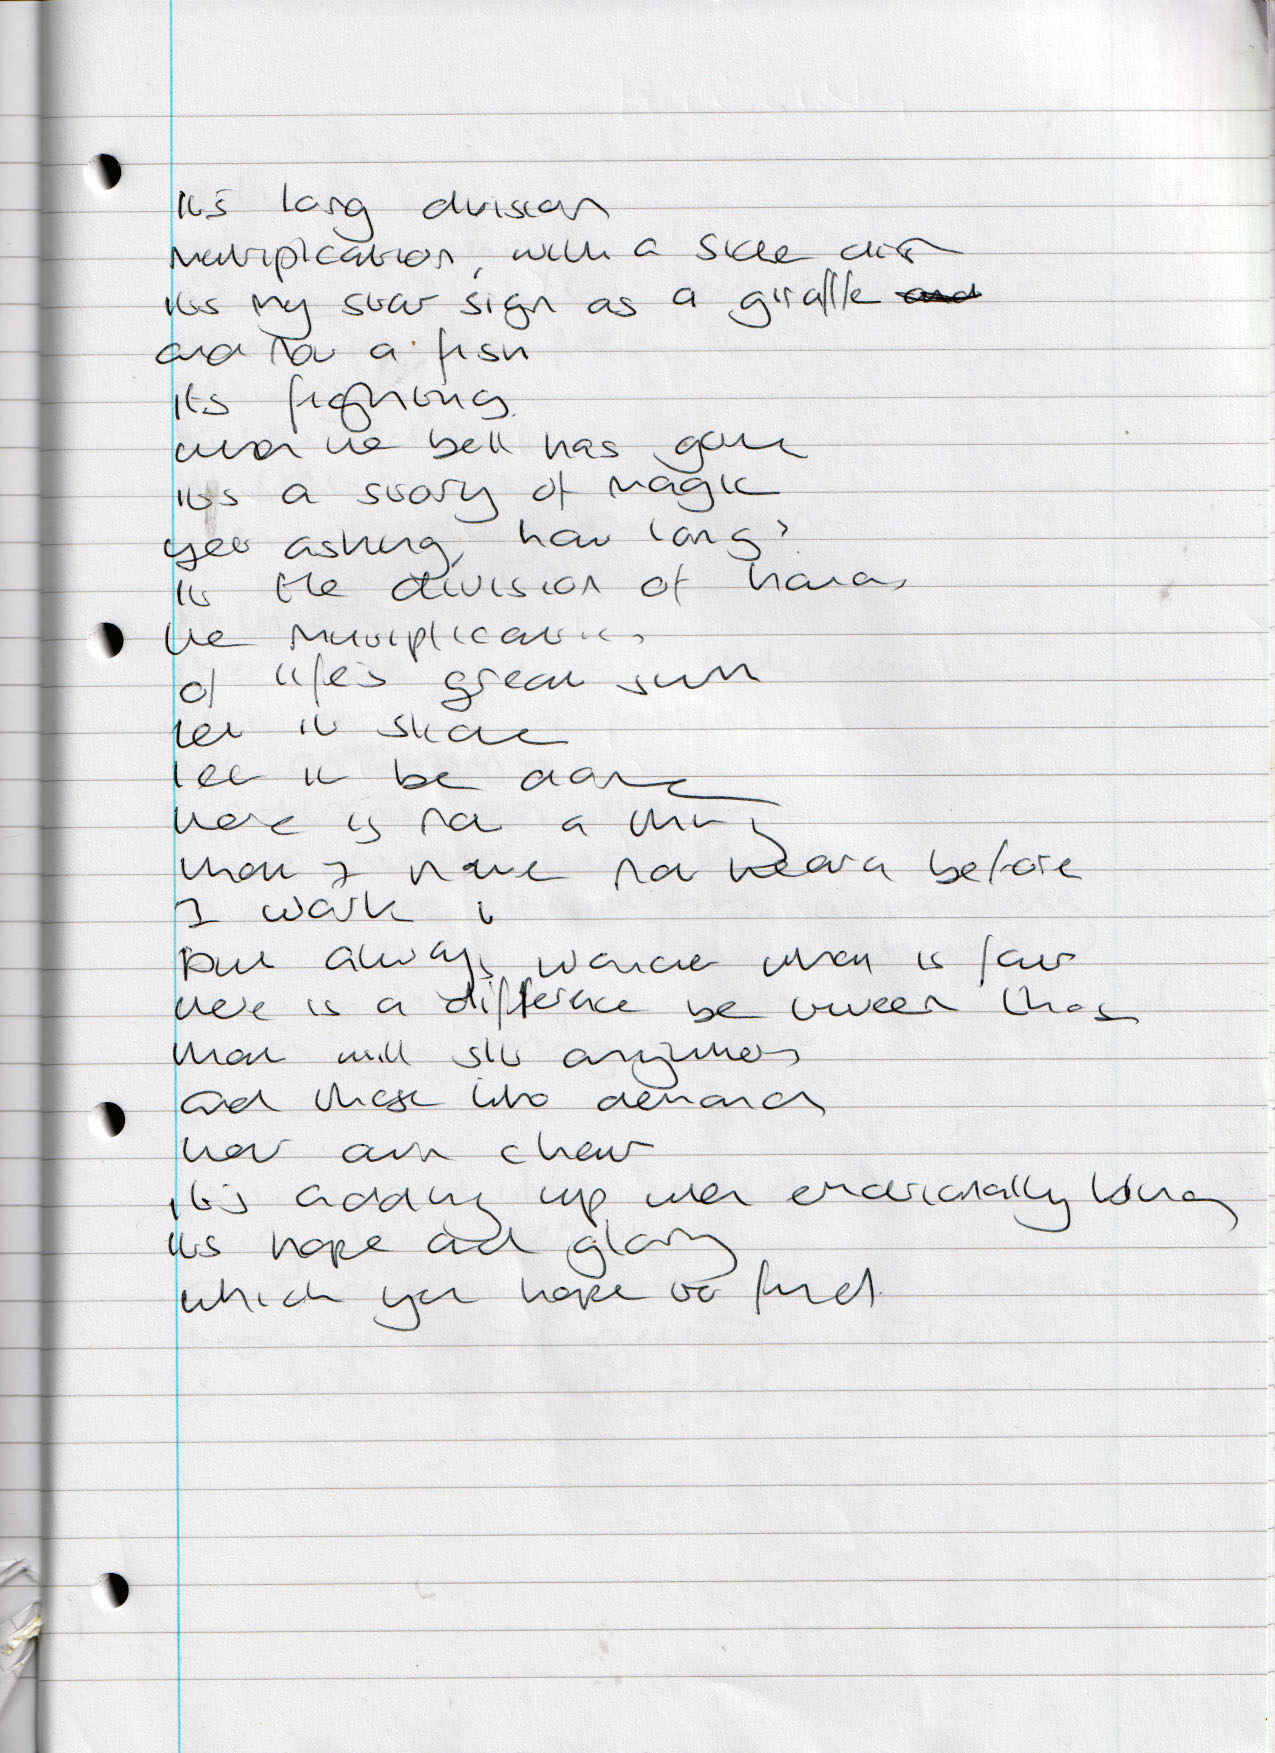 its long division
multiplication, with a side dish
its my star sign as a giraffe
and not a fish
its fighting
when the bell has gone
its a story of magic
yet asking, how long?
its the division of hands
the multiplication
of life's great sum
let it shine
let it be done
there is not a thing
that I have not heard before
I work it
but always wonder what is fair
there is a difference between those
that will sit anywhere
and those who demand
their own chair
its adding up when emotionally blind
its hope and glory
which you hope to find